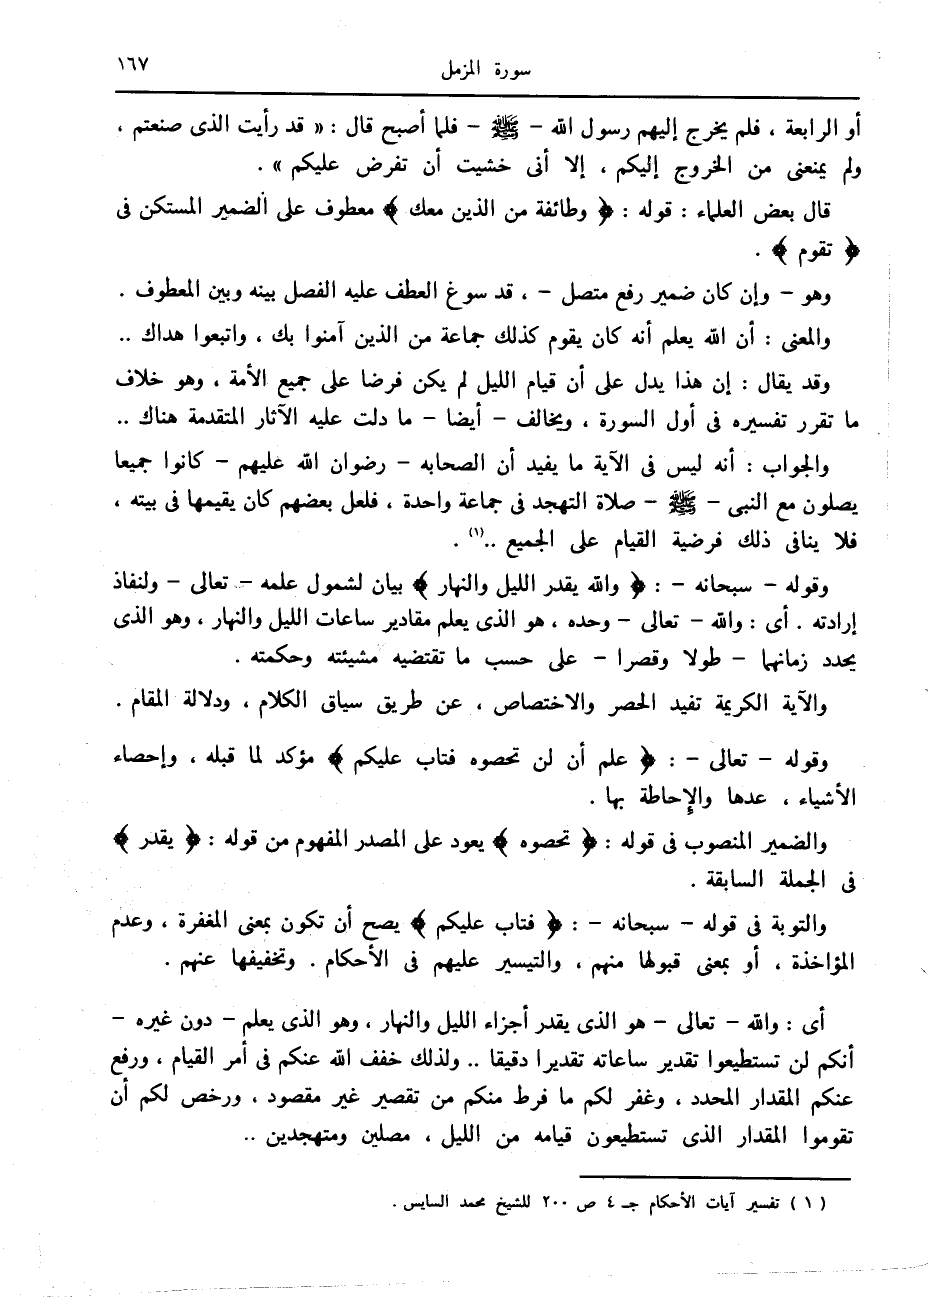 سورة المزمل ١٦٧
أو الرابعة ، فلم يخرج إليهم رسول الله - ﷺ - فلما أصبح قال : « قد رأيت الذى صنعتم ،
ولم يمنعنى من الخروج إليكم ، إلا أنى خشيت أن تفرض عليكم » .
قال بعض العلماء : قوله : ﴿ وطائفة من الذين معك ﴾ معطوف على الضمير المستكن فى
﴿ تقوم ﴾ .
وهو - وإن كان ضمير رفع متصل - ، قد سوغ العطف عليه الفصل بينه وبين المعطوف .
والمعنى : أن الله يعلم أنه كان يقوم كذلك جماعة من الذين آمنوا بك ، واتبعوا هداك ..
وقد يقال : إن هذا يدل على أن قيام الليل لم يكن فرضا على جميع الأمة ، وهو خلاف
ما تقرر تفسيره فى أول السورة ، ويخالف - أيضا - ما دلت عليه الآثار المتقدمة هناك ..
والجواب : أنه ليس فى الآية ما يفيد أن الصحابه - رضوان الله عليهم - كانوا جميعا
يصلون مع النبى - ﷺ - صلاة التهجد فى جماعة واحدة ، فلعل بعضهم كان يقيمها فى بيته ،
فلا ينافى ذلك فرضية القيام على الجميع ..(١) .
وقوله - سبحانه - : ﴿ والله يقدر الليل والنهار ﴾ بيان لشمول علمه - تعالى - ولنفاذ
إرادته . أى : والله - تعالى - وحده ، هو الذى يعلم مقادير ساعات الليل والنهار ، وهو الذى
يحدد زمانهما - طولا وقصرا - على حسب ما تقتضيه مشيئته وحكمته .
والآية الكريمة تفيد الحصر والاختصاص ، عن طريق سياق الكلام ، ودلالة المقام .
وقوله - تعالى - : ﴿ علم أن لن تحصوه فتاب عليكم ﴾ مؤكد لما قبله ، وإحصاء
الأشياء ، عدها والإحاطة بها .
والضمير المنصوب فى قوله : ﴿ تحصوه ﴾ يعود على المصدر المفهوم من قوله : ﴿ يقدر ﴾
فى الجملة السابقة .
والتوبة فى قوله - سبحانه - : ﴿ فتاب عليكم ﴾ يصح أن تكون بمعنى المغفرة ، وعدم
المؤاخذة ، أو بمعنى قبولها منهم ، والتيسير عليهم فى الأحكام . وتخفيفها عنهم .
أى : والله - تعالى - هو الذى يقدر أجزاء الليل والنهار ، وهو الذى يعلم - دون غيره -
أنكم لن تستطيعوا تقدير ساعاته تقديرا دقيقا .. ولذلك خفف الله عنكم فى أمر القيام ، ورفع
عنكم المقدار المحدد ، وغفر لكم ما فرط منكم من تقصير غير مقصود ، ورخص لكم أن
تقوموا المقدار الذى تستطيعون قيامه من الليل ، مصلين ومتهجدين ..
( ١ ) تفسير آيات الأحكام جـ ٤ ص ٢٠٠ للشيخ محمد السايس .